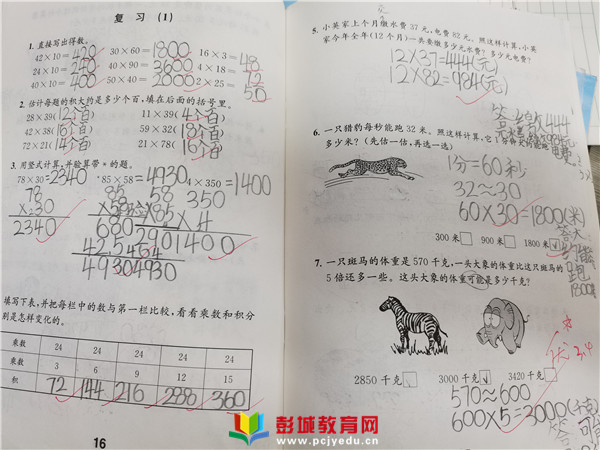 复 习 (1)
1. 直接写出得数。
42×10=420 30×60=1800 16×3=48
24×10=240 40×90=3600 4×18=72
40×10=400 50×40=2000 2×25=50
2. 估计每题的积大约是多少个百,填在后面的括号里。
28×39(12个百) 11×39(4个百)
42×38(16个百) 59×32(18个百)
72×21(14个百) 21×78(16个百)
3. 用竖式计算,并验算带*的题。
78×30=2340 *85×58=4930 4×350=1400
78 85 58 350
×30 ×58 ×85 ×4
2340 680 290 1400
425 464
4930 4930
填写下表,并把每栏中的数与第一栏比较,看看乘数和积分
别是怎样变化的。
乘数 24 24 24 24 24
乘数 3 6 9 12 15
积 72 144 216 288 360
16
5. 小英家上个月缴水费 37 元,电费 82 元。照这样计算,小英
家今年全年(12 个月)一共要缴多少元水费?多少元电费?
12×37=444(元)
12×82=984(元)
6. 一只猎豹每秒能跑 32 米。照这样计算,它1分钟大约能跑
多少米?(先估一估,再选一选)
1分=60秒
32≈30
60×30=1800(米)
300 米 900 米 1800 米✓
7. 一只斑马的体重是 570 千克,一头大象的体重比这只斑马的
5 倍还多一些。这头大象的体重可能是多少千克?
2850 千克 3000 千克✓ 3420 千克
570≈600
600×5=3000(千克)
彭城教育网
www.pcjyedu.cn